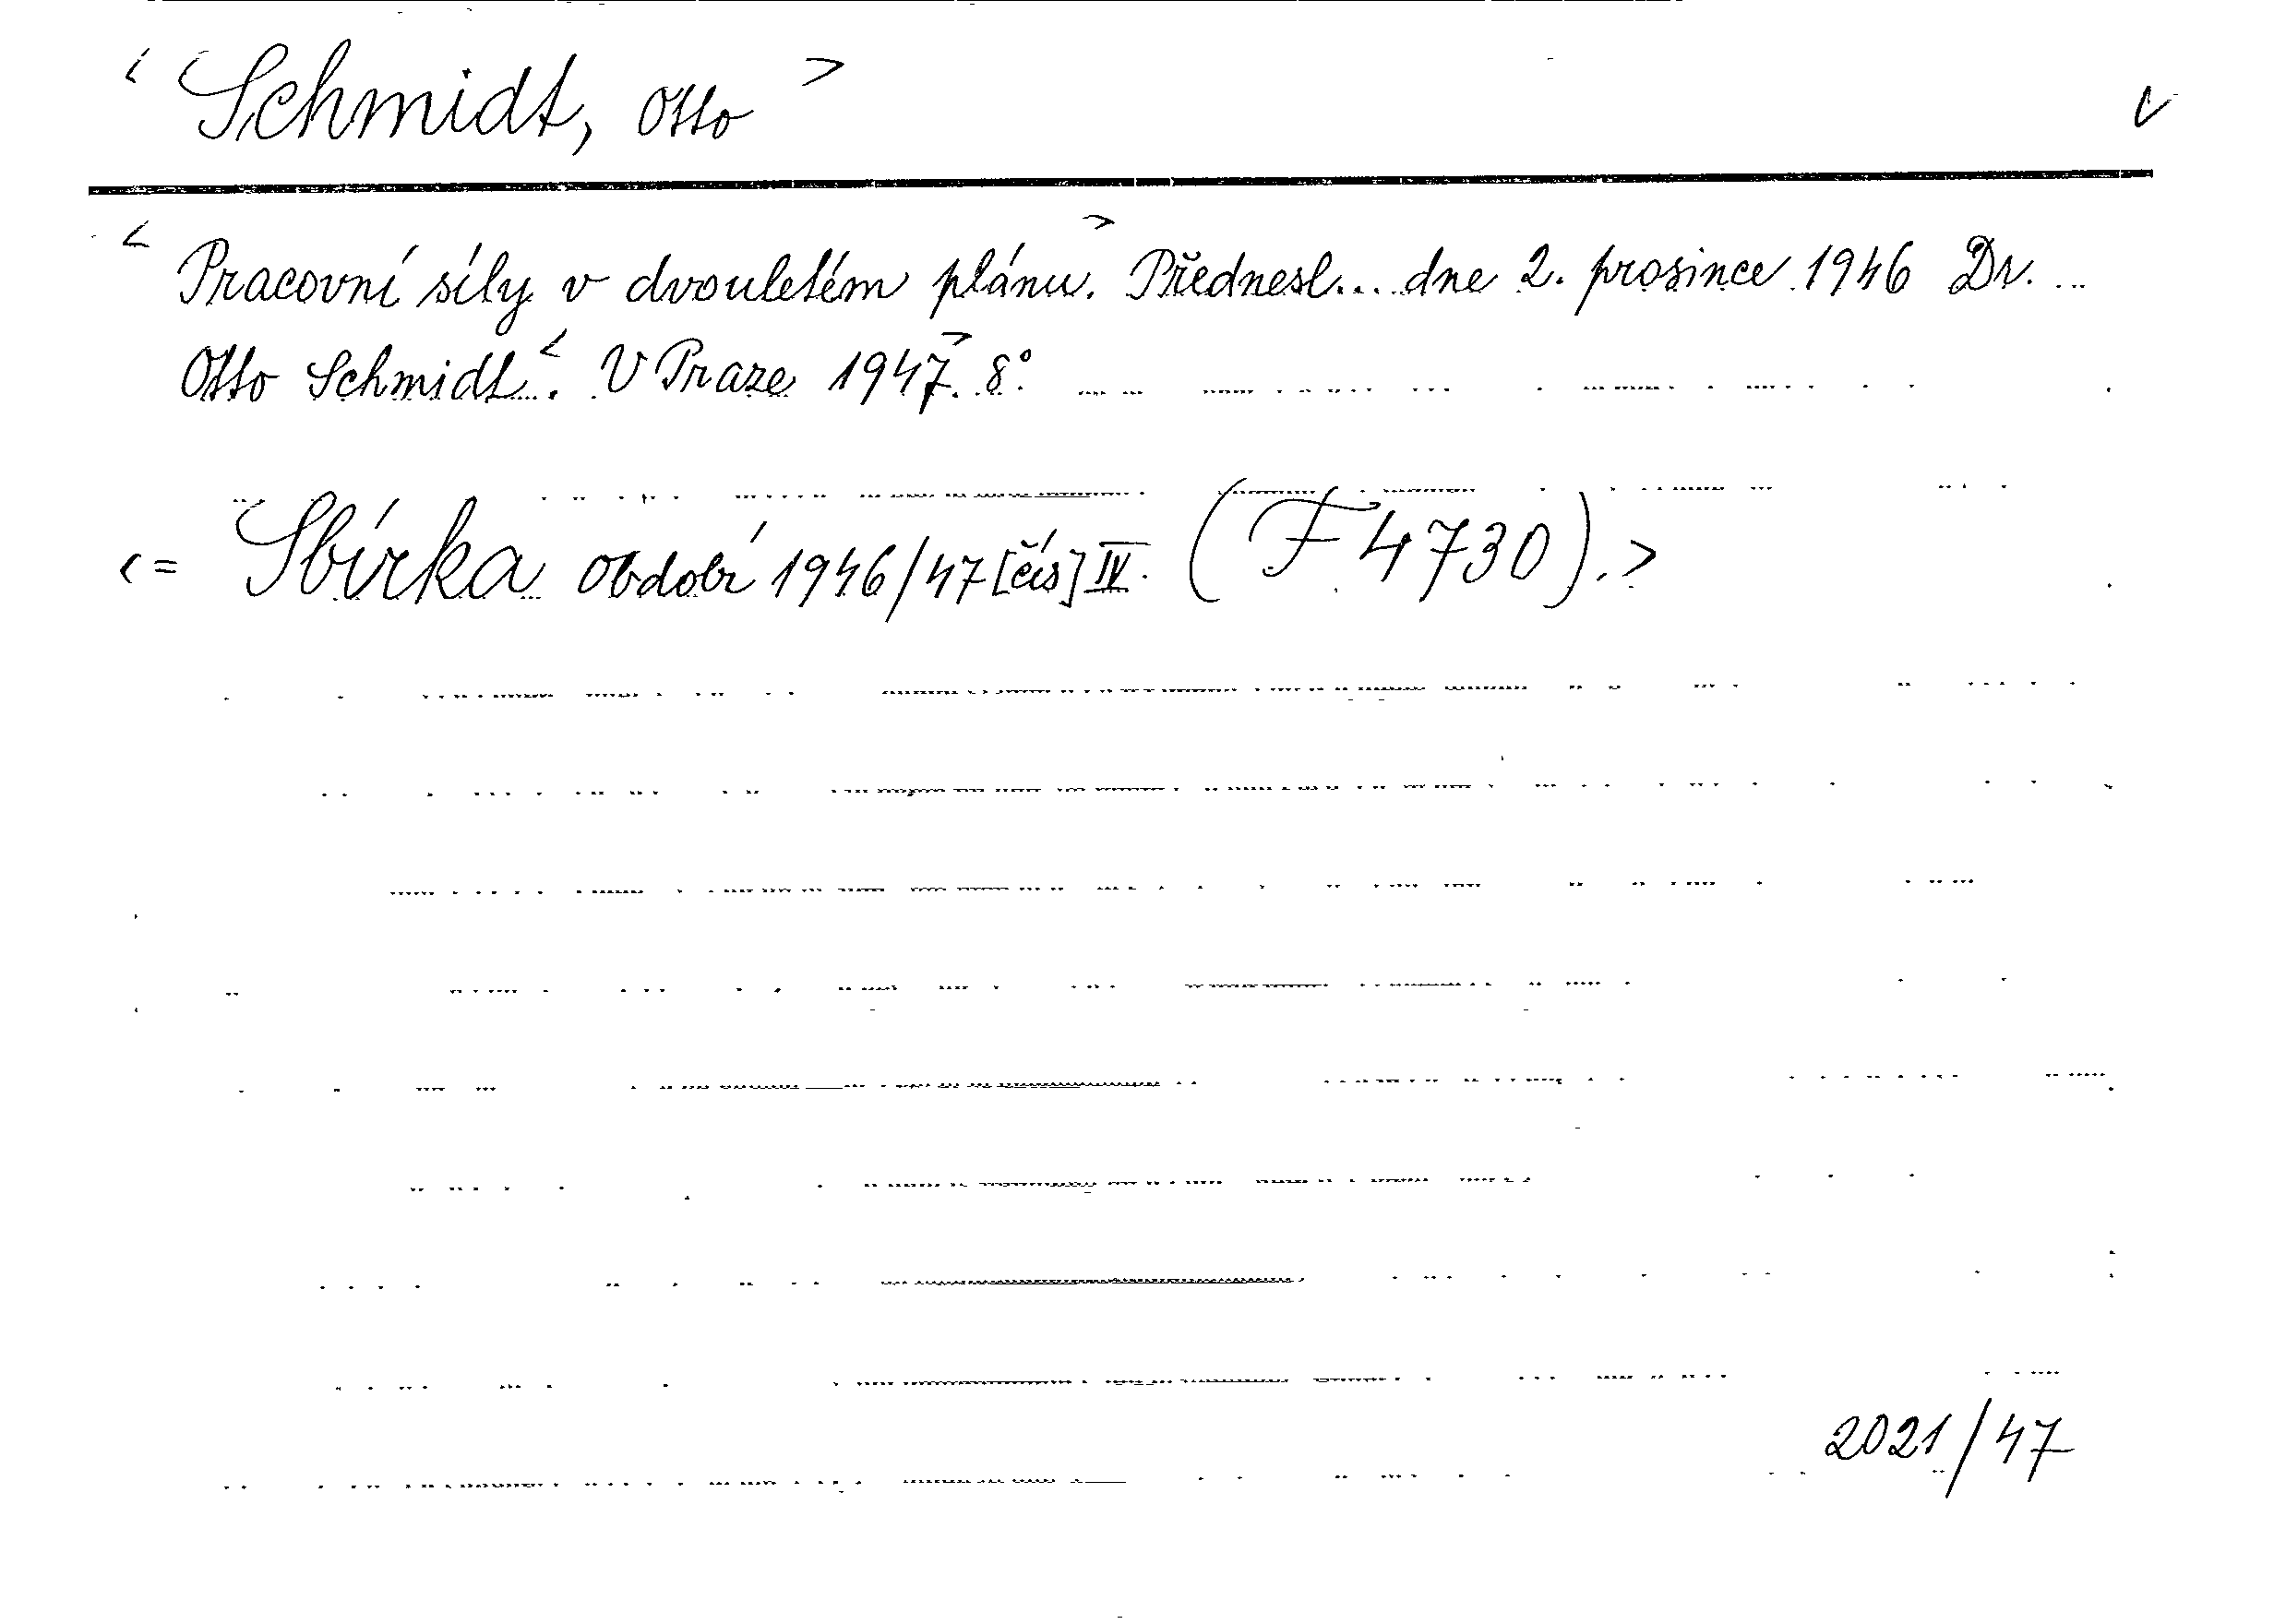 < Schmidt, Otto > v
< Pracovní síly v dvouletém plánu. > Přednesl... dne 2. prosince 1946 Dr. ...
Otto Schmidt. < V Praze 1947. > 8°.
< = Sbírka období 1946/47 [čís] IV. (F 4730). >
2021/47